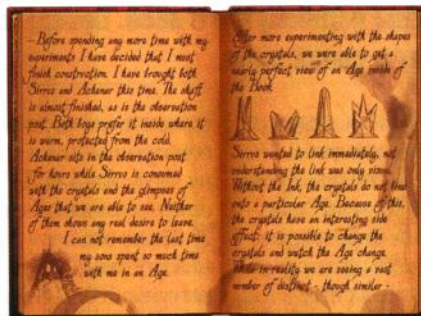 - Before spending any more time with my
experiments I have decided that I must
finish construction. I have brought both
Sirrus and Achenar this time. The shaft
is almost finished, as is the observation
post. Both boys prefer it inside where it
is warm, protected from the cold.
Achenar sits in the observation post
for hours while Sirrus is consumed
with the crystals and the glimpses of
Ages that we are able to see. Neither
of them shows any real desire to leave.
I can not remember the last time
my sons spent so much time
with me in an Age.
After more experimenting with the shapes
of the crystals, we were able to get a
nearly perfect view of an Age inside of
the Book.
Sirrus wanted to link immediately, not
understanding the link was only visual.
Without the Ink, the crystals do not bind
onto a particular Age. Because of this,
the crystals have an interesting side
effect: it is possible to change the
crystals and watch the Age change.
While in reality we are seeing a vast
number of distinct - though similar -